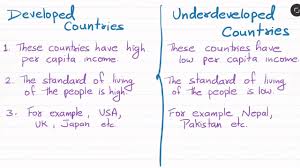 Developed
Countries
1. These countries have high
per capita income.
2. The standard of living
of the people is high.
3. For example, USA,
UK, Japan etc.
Underdeveloped
Countries
These countries have
low per capita income.
The standard of living
of the people is low.
For example, Nepal,
Pakistan etc.